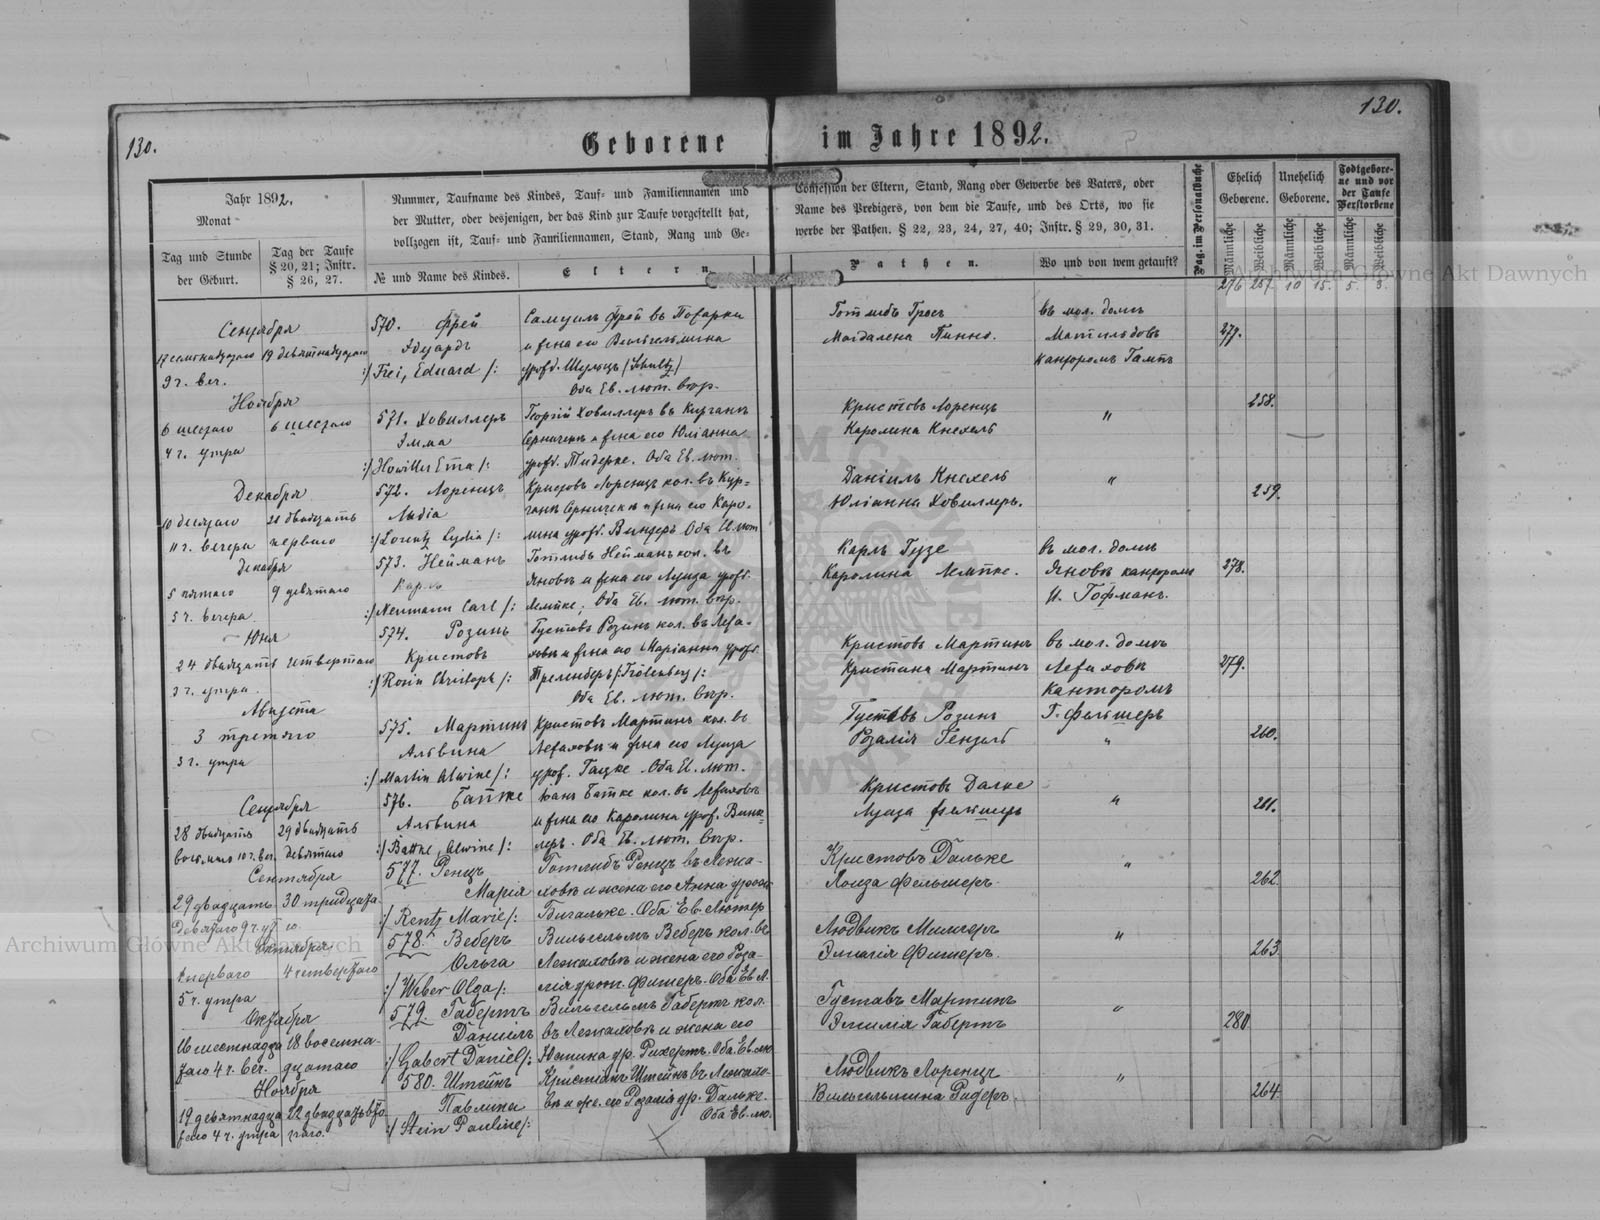 130.
130.
Geborene im Jahre 1892.
Jahr 1892.
Monat
Tag und Stunde der Geburt.
Tag der Taufe § 20, 21; Instr. § 26, 27.
Nummer, Taufname des Kindes, Tauf- und Familiennamen und
der Mutter, oder desjenigen, der das Kind zur Taufe vorgestellt hat,
vollzogen ist, Tauf- und Familiennamen, Stand, Rang und Ge-
№ und Name des Kindes.
Eltern.
Confession der Eltern, Stand, Rang oder Gewerbe des Vaters, oder
Name des Predigers, von dem die Taufe, und des Orts, wo sie
werbe der Pathen. § 22, 23, 24, 27, 40; Instr. § 29, 30, 31.
Pathen.
Wo und von wem getauft?
Pag. im Personalbuche
Ehelich Geborene.
Unehelich Geborene.
Todtgeborene und vor der Taufe Verstorbene
Männliche
Weibliche
Männliche
Weibliche
Männliche
Weibliche
276 257 10 15. 5. 3.
Сентября
9 г. веч.
570. Фрей
Эдуардъ
:/ Frei, Eduard /:
Самуилъ Фрей въ
и жена его Вильгельмина
урожд. Шульцъ (Schultz)
Оба Ев. лют. вѣр.
Готлибъ Гросъ
Магдалена
въ мол. домѣ
Матильдовъ
277.
Ноября
6 шестаго
6 шестаго
4 г. утра
571. Ховиллеръ
Эмма
:/ Howiller Ema /:
Георгій Ховиллеръ въ
и жена его Юліанна
урожд. Тидерке. Оба Ев. лют.
Кристовъ Лоренцъ
Каролина Кнехель
"
258.
Декабря
10 десятаго
21 двадцать перваго
11 г. вечера
572. Лоренцъ
Лидіа
:/ Lorentz Lydia /:
Кристовъ Лоренцъ кол. въ Кур-
и жена его Каро-
лина урожд. Оба Ев. лют
Даніилъ Кнехель
Юліанна Ховиллеръ.
"
259.
Декабря
5 пятаго
9 девятаго
5 г. вечера
573. Нейманъ
Карлъ
:/ Neumann Carl /:
Готлибъ Нейманъ кол. въ
Яновкѣ и жена его Луиза урожд.
Лемпке; Оба Ев. лют. вѣр.
Карлъ Гузе
Каролина Лемпке.
въ мол. домѣ
Яновкѣ канторомъ
И. Гофманъ.
278.
Юня
24 двадцать четвертаго
3 г. утра
574. Розинъ
Кристовъ
:/ Rosin Christoph /:
Густавъ Розинъ кол. въ Лежа-
ховкѣ и жена его Маріанна урожд.
Оба Ев. лют. вѣр.
Кристовъ Мартинъ
Кристина Мартинъ
въ мол. домѣ
Лежаховкѣ
Канторомъ
Г. Фельшеръ
279.
Августа
3 третяго
3 г. утра
575. Мартинъ
Альвина
:/ Martin Alwine /:
Кристовъ Мартинъ кол. въ
Лежаховкѣ и жена его Луиза
урож. Оба Ев. лют.
Густавъ Розинъ
Розалія
"
260.
Сентября
28 двадцать
29 двадцать
10 г. веч.
девятаго
576. Батке
Альвина
:/ Battke, Alwine /:
Іоанъ Батке кол. въ Лежаховкѣ
и жена его Каролина урож. Винк-
леръ. Оба Ев. лют. вѣр.
Кристовъ Далке
Луиза Фельшеръ
"
261.
Сентября
29 двадцать
30 тридцата-
девятаго 9 г. ут
го.
577. Ренцъ
Марія
:/ Rentz Marie /:
Готлибъ Ренцъ въ Лежа-
ховкѣ и жена его Анна урожд
Бигальке. Оба Ев. Лютер
Кристовъ Дальке
Лоиза Фельшеръ
"
262.
Октября
1 перваго
4 четвертаго
5 г. утра
578. Веберъ
Ольга
:/ Weber Olga /:
Вильгельмъ Веберъ кол. въ
Лежаховкѣ и жена его Роза-
лія урож. Фишеръ. Оба Ев. Л.
Людвикъ
Эмилія Фишеръ.
"
263
Октября
16 шестнадца
18 восемна-
таго 4 г. веч.
дцатаго
579 Габертъ
Даніилъ
:/ Gabert Daniel /:
Вильгельмъ Габертъ кол.
въ Лежаховкѣ и жена его
ур. Рихертъ. Оба Ев. лю
Густавъ Мартинъ
Эмилія Габертъ
"
280
Ноября
19 девятнадца
таго 4 г. утра
580. Штейнъ
Павлина
:/ Stein Pauline /:
Кристіанъ Штейнъ въ Лежахо-
вкѣ и же. его Розалія ур. Дальке
Оба Ев. лю.
Людвикъ Лоренцъ
Вильгельмина Ридеръ.
"
264
Archiwum Główne Akt Dawnych
Archiwum Główne Akt Dawnych